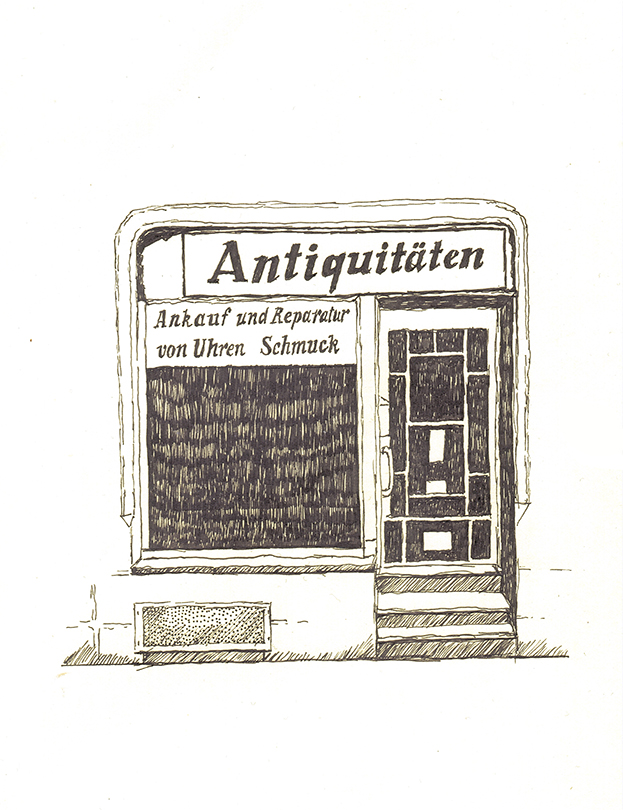 Antiquitäten
Ankauf und Reparatur
von Uhren Schmuck